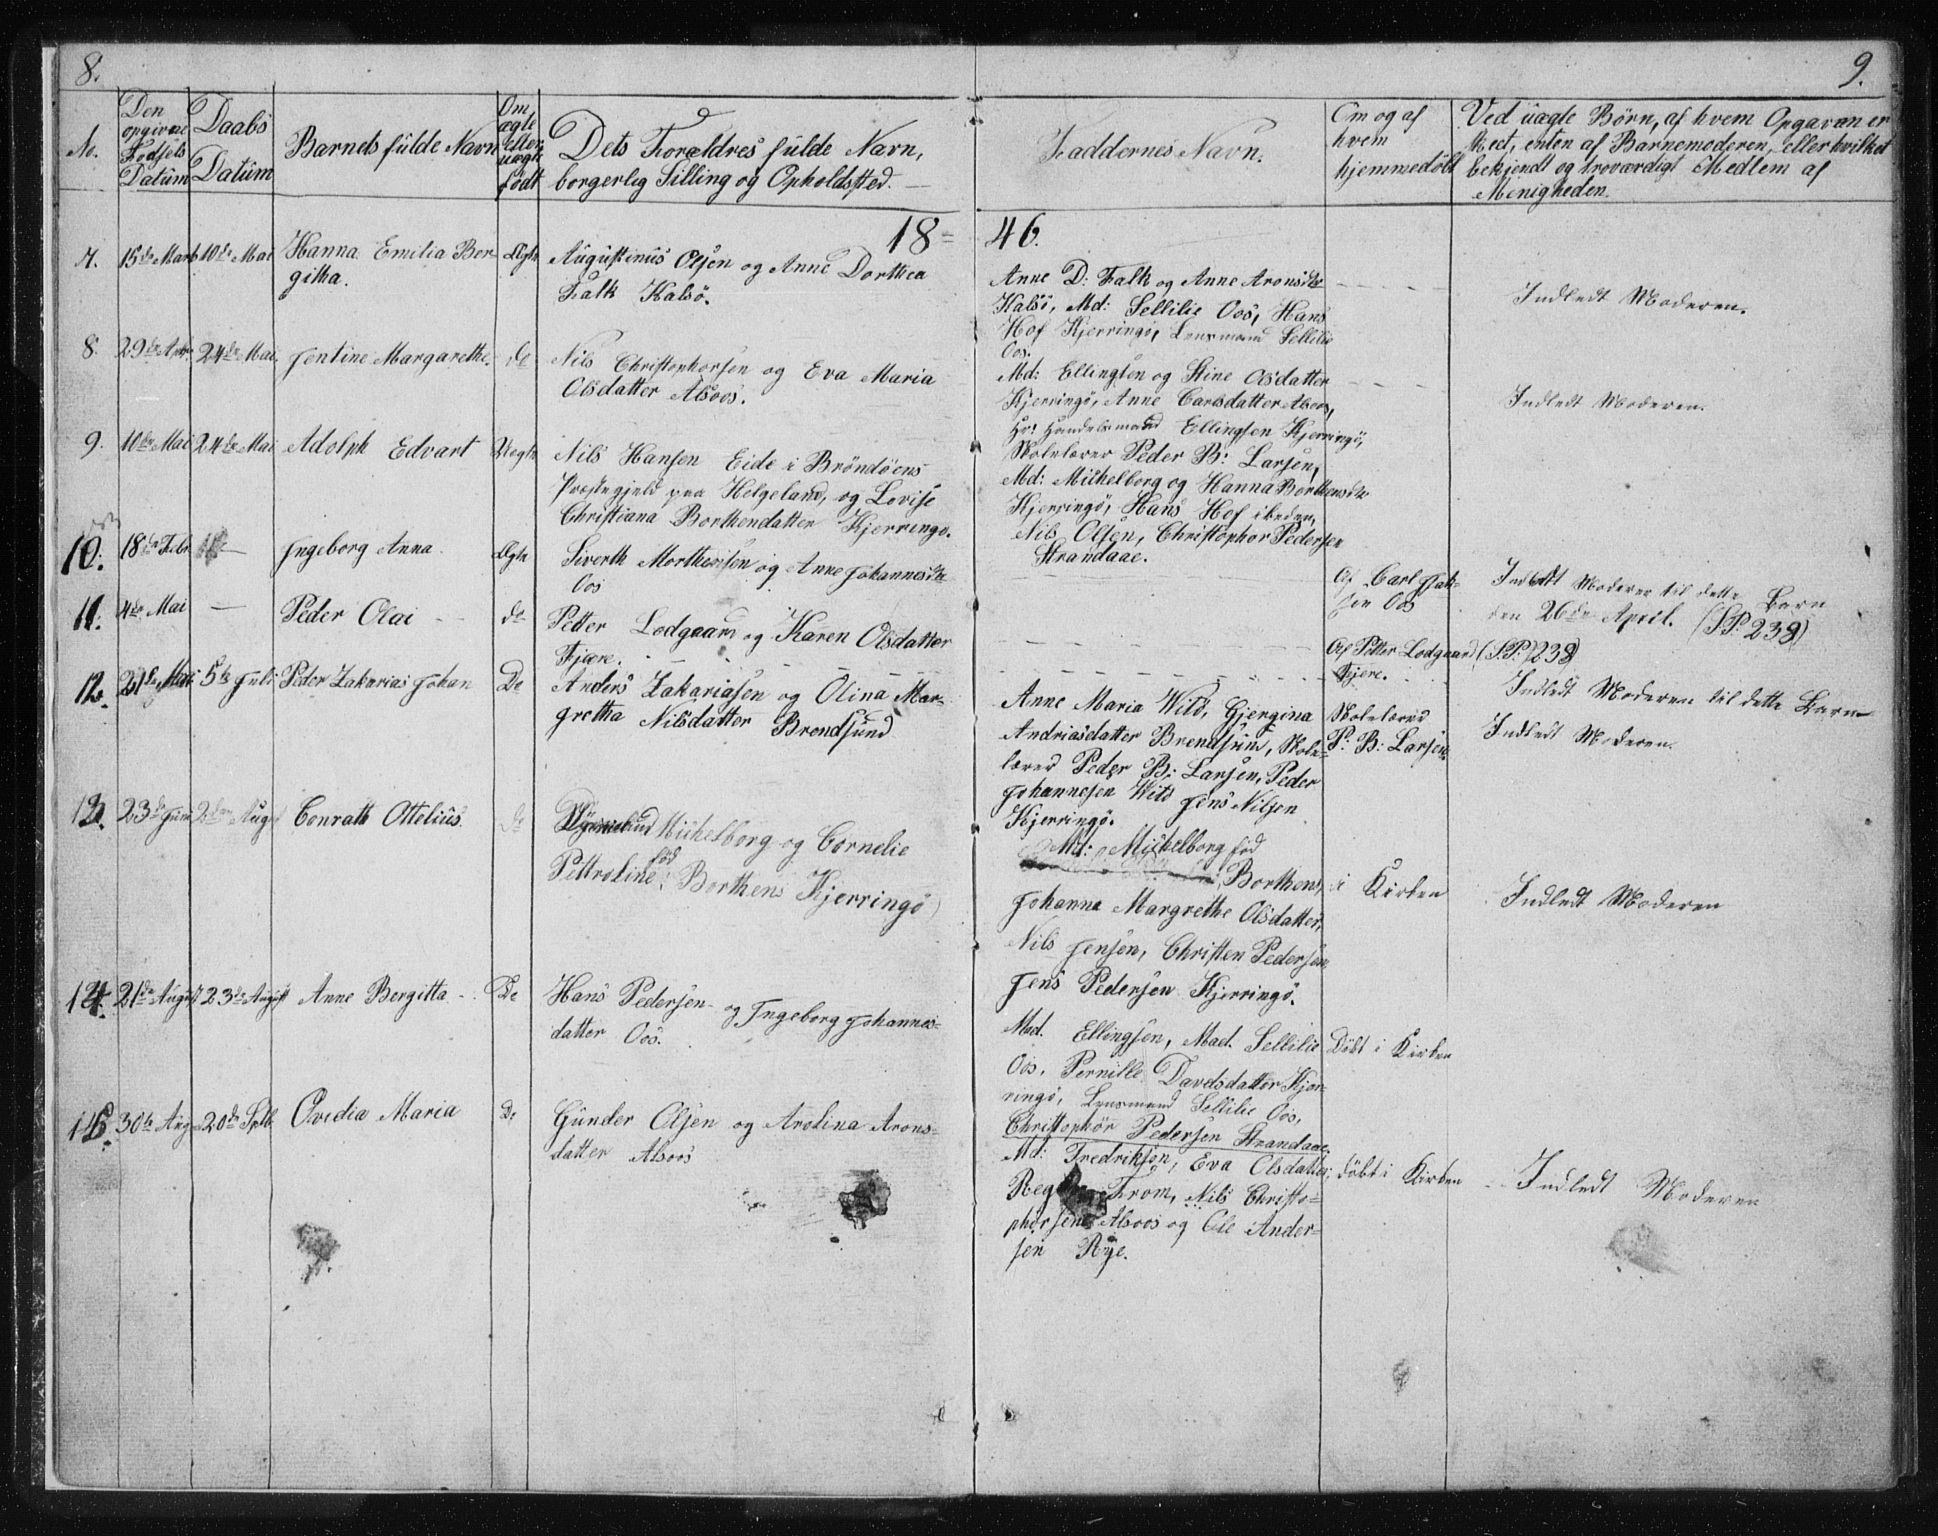 8.
9.
No.
Den
opgivne
Fødsels
Datum
Daabs
Datum
Barnets fulde Navn
Om
ægte
eller
uægte
født
Dets Forældres fulde Navn,
borgerlig Stilling og Opholdsted.
Faddernes Navn.
Om og af
hvem
hjemmedöbt
Ved uægte Børn, af hvem Opgaven er
skeet, enten af Barnemoderen, eller hvilket
bekjendt og troværdigt Medlem af
Menigheden.
18=46.
7. 15de Marts 10de Mai Hanna Emilia Ber-
githa.
Ægte
Augustinus Olsen og Anne Dorthea
Falk Kalsö.
Anne D: Falk og Anne Aronsdtr
Kalsö, Md: Sellilie Oos, Hans
Hof Kjerringö, Lensmand Sellilie
Oos.
Indledt Moderen.
8. 29de Apr 24de Mai Jentine Margarethe. do
Nils Christophersen og Eva Maria
Olsdatter Alsoos.
Md: Ellingsen og Stine Olsdatter
Kjerringö, Anne Carlsdatter Alsoos,
Hr: Handelsmand Ellingsen Kjerringö,
Skolelærer Peder B: Larsen,
Indledt Moderen.
9. 10de Mai 24de Mai Adolph Edvart Uegte
Nils Hansen Eide i Bröndöens
Præstegjeld paa Helgeland, og Lovise
Christiana Borthendatter Kjerringö.
Md: Mickelborg og Hanna Borthensdtr
Kjerringö, Hans Hof ibeden,
Nils Olsen, Christophor Pedersen
Strandaae.
10. 18de Febr — Ingeborg Anna. Ægte
Siverth Morthensen og Anne Johannesdtr
Oos
Af Carl
sen Oos
Indledt Moderen til dette Barn
den 26de April. (S.P: 238)
11. 4de Mai — Peder Olai do
Petter Lodgaard og Karen Olsdatter
Fjære.
Af Petter Lodgaard
Fjære.
(S.P: 238)
Indledt Moderen til dette Barn
12. 21de Mai 5te Juli Peder Zakarias Johan Do
Anders Zakariasen og Olina Mar-
gretha Nilsdatter Brendsund
Anne Maria Wild, Gjergina
Andriasdatter Brendsund, Skole-
lærer Peder B: Larsen, Peder
Johannesen Wild Jens Nilsen
Kjerringö.
Skolelærer
P: B: Larsen
Indledt Moderen.
13. 23de Juni 2den August Conrath Ottelius. do
Mickelborg og Cornelie
Pettroline föd Borthens Kjerringö
Md: Mickelborg föd
Borthens,
Johanna Margrethe Olsdatter,
Nils Jensen, Christen Pedersen
Jens Pedersen Kjerringö.
i Kirken
Indledt Moderen
14. 21de August 23de August Anne Bergitta Do
Hans Pedersen og Ingeborg Johannes-
datter Oos.
Md. Ellingsen, Mad. Sellilie
Oos, Pernille Davidsdatter Kjer-
ringö, Lensmand Sellilie Oos,
Christophor Pedersen Strandaae.
Döbt i Kirken
15. 30te Aug 20de Sptb. Ovidia Maria Do
Gunder Olsen og Arolina Arons-
datter Alsoos
Md: Fredriksen, Eva Olsdatter,
From, Nils Christo-
phersen Alsoos og Ole Ander-
sen Rye.
döbt i Kirken
Indledt Moderen